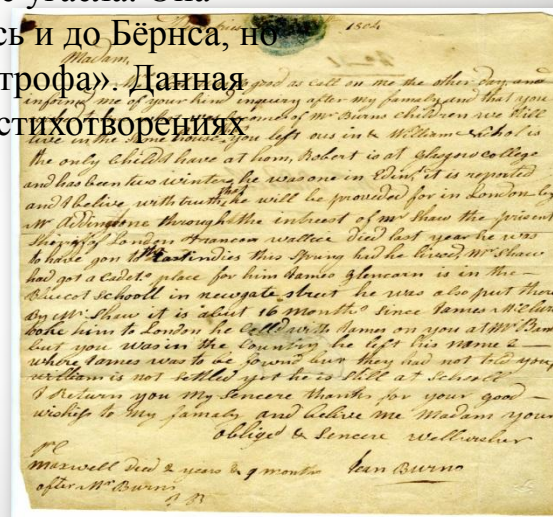 угасла. Она
сь и до Бёрнса, но
трофа». Данная
стихотворениях
1804
Madam,
good as call on me the other day and
inform'd me of your kind inquiry after my famaly and that you
of Mr Burns children we still
live in the same house you left ous in & William Nichol is
the only Child I have at hom, Robert is at Glasgow College
and has been two winters he was one in Edinr, it is reported
and I belive with truth, that he will be provided for in London by
Mr Addington through the intrest of mr Shaw the present
Sheriff of London Francos wallice died last year he was
to have gon to the East indies this Spring had he lived, Mr Shaw
had got a Cadets place for him James Glencarn is in the
Blucot schooll in newgate street he was also put there
By Mr Shaw it is abut 16 months since James
him to London he Called with James on you at Mr
but you was in the Country he left his name &
where James was to be found but they had not told you
william is not settled yet he is Still at Schooll
I Return you my Sencere thanks for your good
wishes to my famaly and belive me Madam your
obliged & Sencere wellwisher
Jean Burns
maxwell died 2 years & 9 months
after Mr Burns